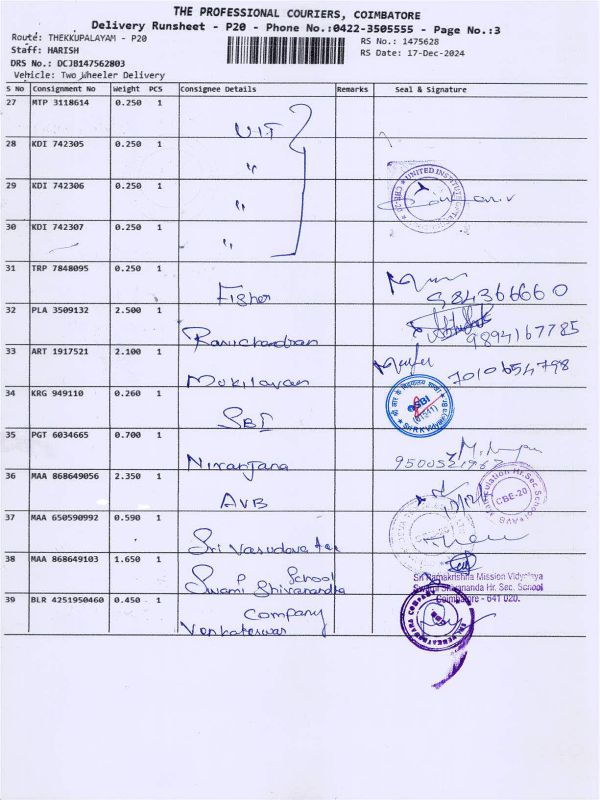 THE PROFESSIONAL COURIERS, COIMBATORE
Delivery Runsheet - P20 - Phone No.:0422-3505555 - Page No.:3
Route: THEKKUPALAYAM - P20
RS No.: 1475628
Staff: HARISH
RS Date: 17-Dec-2024
DRS No.: DCJB147562803
Vehicle: Two Wheeler Delivery
S No Consignment No Weight PCS Consignee Details Remarks Seal & Signature
27 MTP 3118614 0.250 1 UIT
28 KDI 742305 0.250 1 "
29 KDI 742306 0.250 1 " UNITED INSTITUTE
30 KDI 742307 0.250 1 "
31 TRP 7848095 0.250 1 Fisher 984366660
32 PLA 3509132 2.500 1 Ramchandran 9894167785
33 ART 1917521 2.100 1 Mukilavan 7010654798
34 KRG 949110 0.260 1 SBI SBI
35 PGT 6034665 0.700 1 Niranjana
36 MAA 868649056 2.350 1 AVB Hr.Sec School CBE-20
37 MAA 650590992 0.590 1 Sri Vasudeva
38 MAA 868649103 1.650 1 Swami Shivananda School
Sri Ramakrishna Mission Vidyalaya
Swami Shivananda Hr. Sec. School
Coimbatore - 641 020.
39 BLR 4251950460 0.450 1 Venkateswar Company